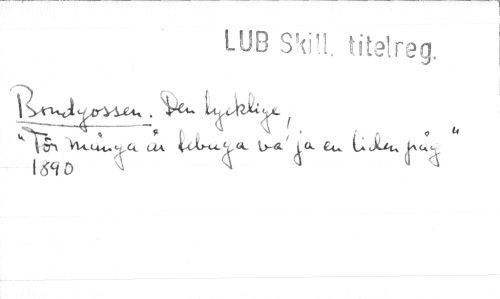 LUB Skill. titelreg.
Bondgossen. Den lycklige,
"För många år tebuga va' ja en liden påg"
1890